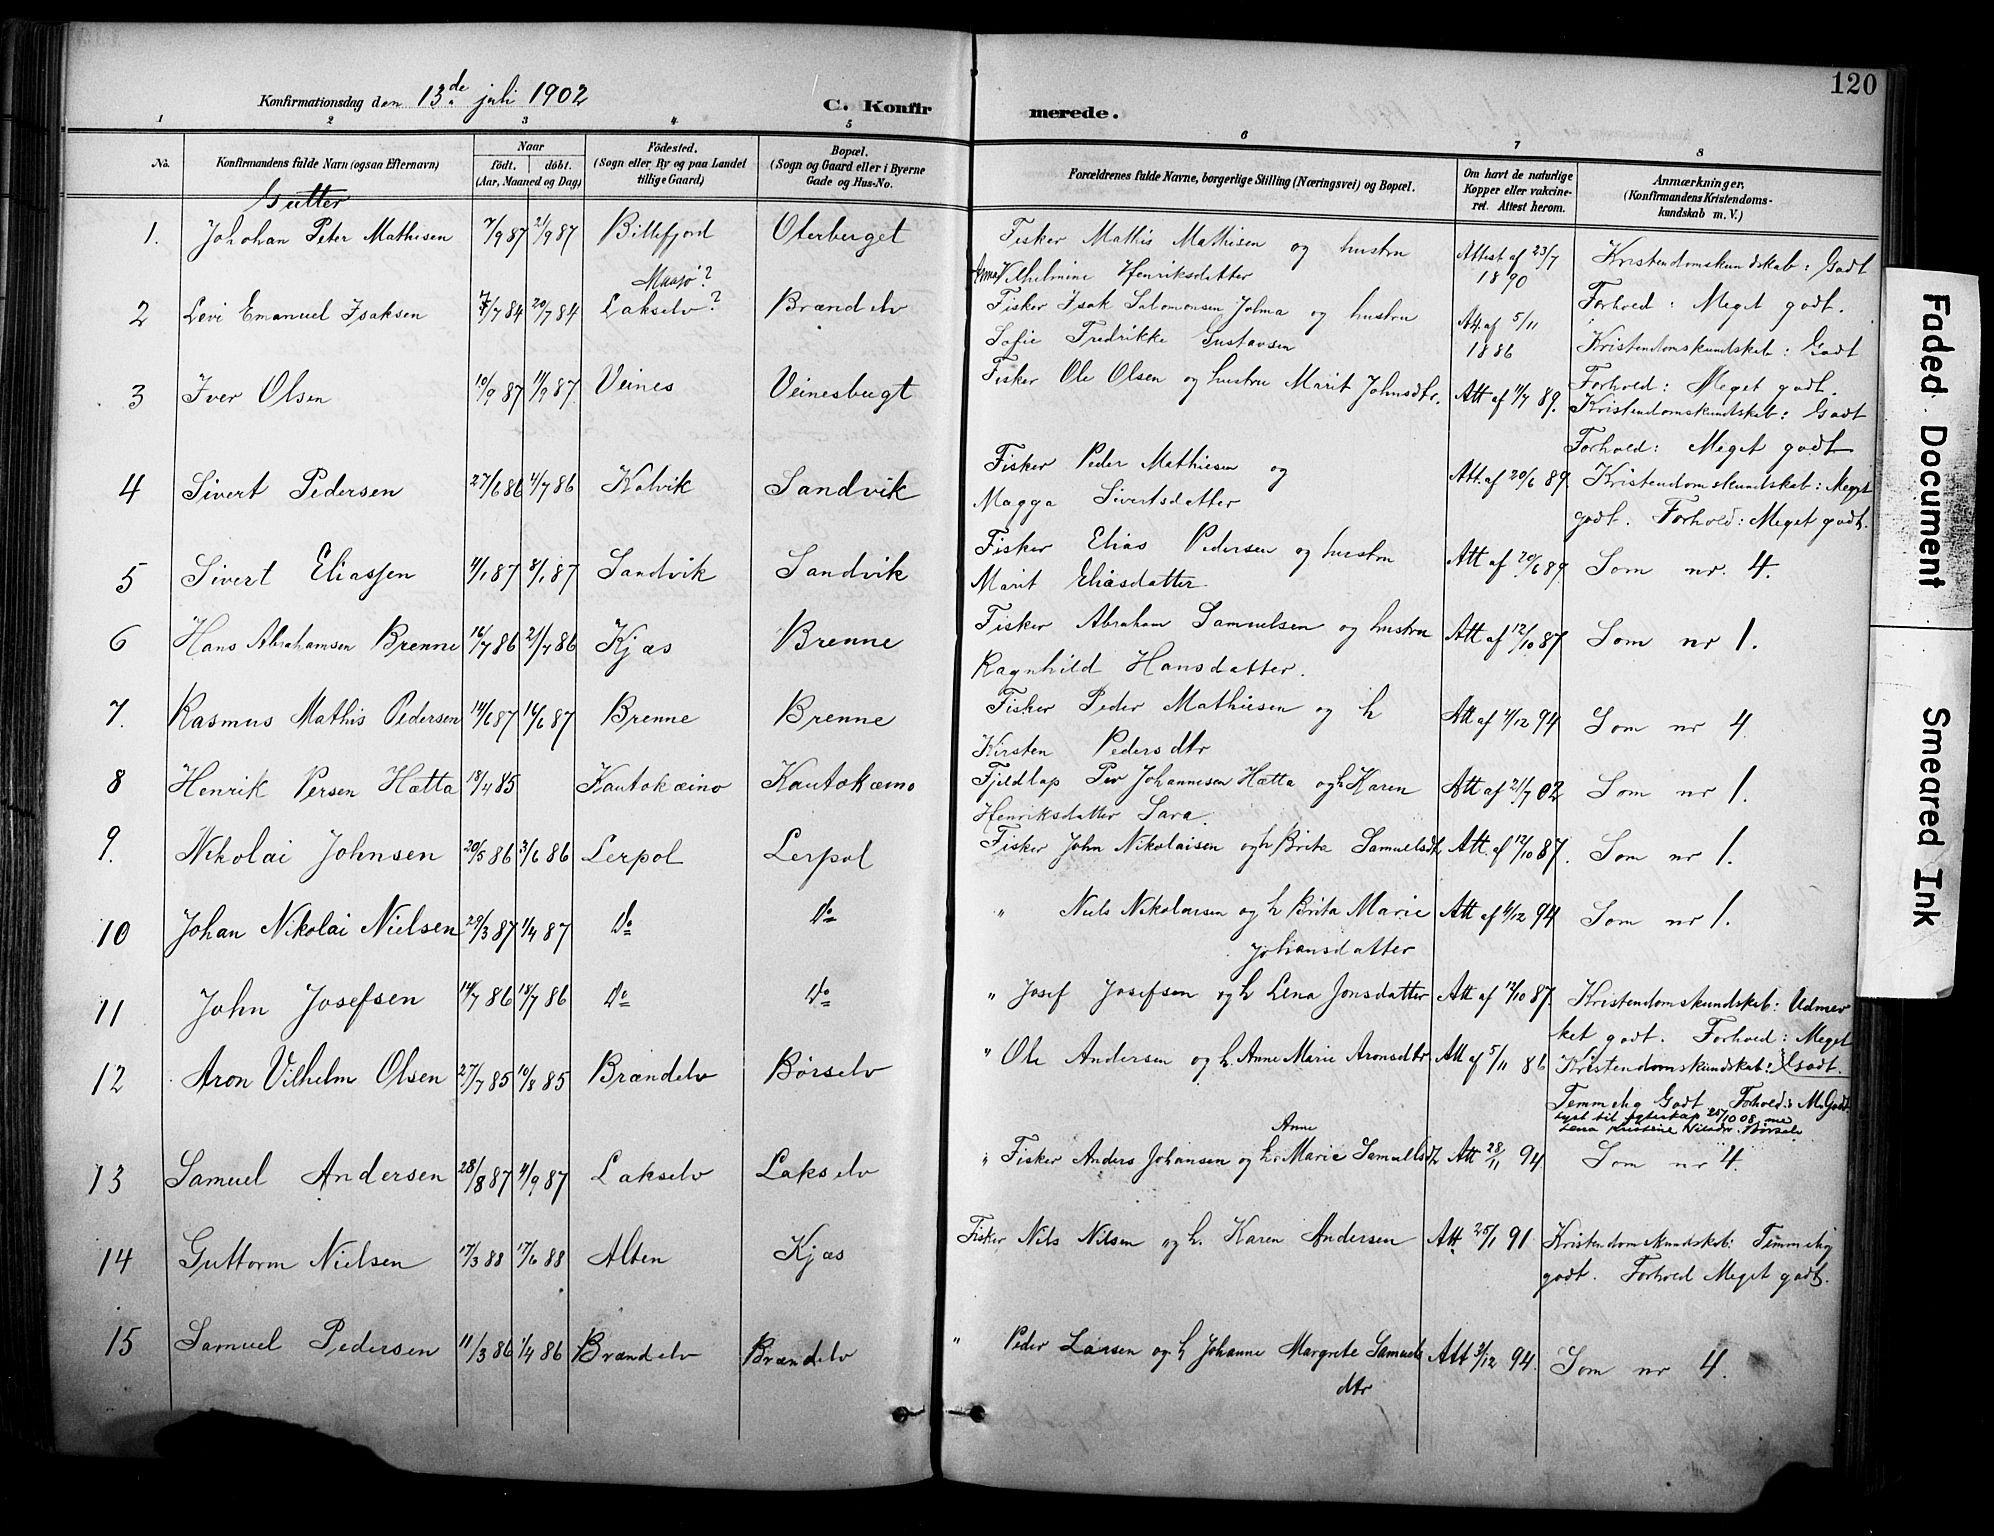 120
Konfirmationsdag den 13de juli 1902
C. Konfir merede.
1 2 3 4 5 6 7 8
No. Konfirmandens fulde Navn (ogsaa Efternavn) Naar födt. döbt. (Aar, Maaned og Dag) Födested. (Sogn eller By og paa Landet tillige Gaard) Bopæl. (Sogn og Gaard eller i Byerne Gade og Hus-No. Forældrenes fulde Navne, borgerlige Stilling (Næringsvei) og Bopæl. Om havt de naturlige Kopper eller vakcineret. Attest herom. Anmærkninger. (Konfirmandens Kristendomskundskab m. V.)
Gutter
1. Johohan Peter Mathisen 7/9 87 21/9 87 Billefjord Oterberget Fisker Mathis Mathisen og hustru Attest af 23/7 1890 Kristendomskundskab: Godt
Anna Vilhelmine Henriksdatter Forhold: Meget godt.
2 Levi Emanuel Isaksen 7/7 84 20/7 84 Maasö? Lakselv? Brændelv Fisker Isak Salomonsen Jolma og hustru Att. af 5/11 1886 Kristendomskundskab: Godt
Sofie Fredrikke Gustavsen Forhold: Meget godt.
3 Iver Olsen 10/9 87 11/9 87. Veines Veinesbugt Fisker Ole Olsen og hustru Marit Johnsdtr. Att af 11/7 89. Kristendomskundskab: Godt
Forhold: Meget godt
4 Sivert Pedersen 27/6 86 11/7 86 Kolvik Sandvik Fisker Peder Mathiesen og Att. af 20/6 89 Kristendomskundskab: Meget
Magga Sivertsdatter godt. Forhold: Meget godt.
5 Sivert Eliassen 4/1 87 8/1 87 Sandvik Sandvik Fisker Elias Pedersen og hustru Att af 20/6 89 Som nr. 4.
Marit Eliasdatter
6 Hans Abrahamsen Brenne 16/7 86 21/7 86 Kjæs Brenne Fisker Abraham Samuelsen og hustru Att af 12/10 87 Som nr 1.
Ragnhild Hansdatter.
7. Rasmus Mathis Pedersen 14/6 87 16/6 87 Brenne Brenne Fisker Peder Mathiesen og h Att af 4/12 94 Som nr 4
Kirsten Pedersdtr
8 Henrik Persen Hætta 18/4 85 Kautokæino Kautokæino Fjeldlap Per Johannesen Hætta og h Karen Att af 21/7 02 Som nr 1.
Henriksdatter Sara.
9. Nikolai Johnsen 20/5 86 3/6 86 Lerpol Lerpol Fisker John Nikolaisen og h Brita Samuelsdt Att. af 12/10 87. Som nr 1.
10 Johan Nikolai Nielsen 29/3 87 1/4 87 Do Do " Niels Nikolaisen og h Brita Marie Att af 4/12 94 Som nr 1.
Johansdatter
11 John Josefsen 14/7 86 18/7 86 Do Do " Josef Josefsen og h Lena Jonsdatter Att af 12/10 87 Kristendomskundskab: Udmer
ket godt. Forhold: Meget Godt.
12 Aron Vilhelm Olsen 27/7 85 10/8 85 Brændelv Börselv " Ole Andersen og h. Anne Marie Aronsdtr Att af 5/11 86 Kristendomskundskab:
Temmelig Godt Forhold: M. Godt
Lyst til ægteskap 25/10 08 me
Lena Kristine Nilsdr. Börselv
13 Samuel Andersen 28/8 87 4/9 87 Lakselv Lakselv " Fisker Anders Johansen og h. Anne Marie Samuelsdt Att 28/11 94 Som nr 4.
14 Guttorm Nielsen 17/3 88 17/6 88 Alten Kjæs Fisker Nils Nilsen og h. Karen Andersen Att 25/1 91 Kristendomskundskab: Temmelig
godt. Forhold Meget godt.
15 Samuel Pedersen 11/3 86 1/4 86 Brændelv Brændelv " Peder Larsen og h Johanne Margrete Samuels Att 3/12 94. Som nr 4.
dtr
Faded Document
Smeared Ink